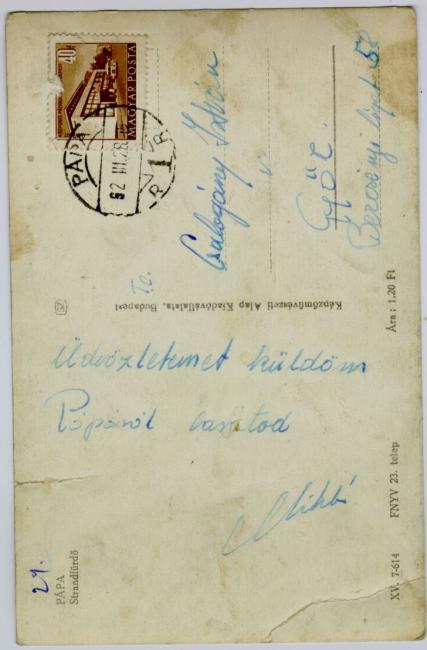 40 f
MAGYAR POSTA
PÁPA
62 III.28
1
T.c.
Csalogány István
GYŐR
Bercsényi liget 52
Képzőművészeti Alap Kiadóvállalata, Budapest
Ára: 1,20 Ft
Üdvözletemet küldöm
Pápáról barátod
29.
PÁPA
Strandfürdő
XV. 7-614 FNYV 23. telep